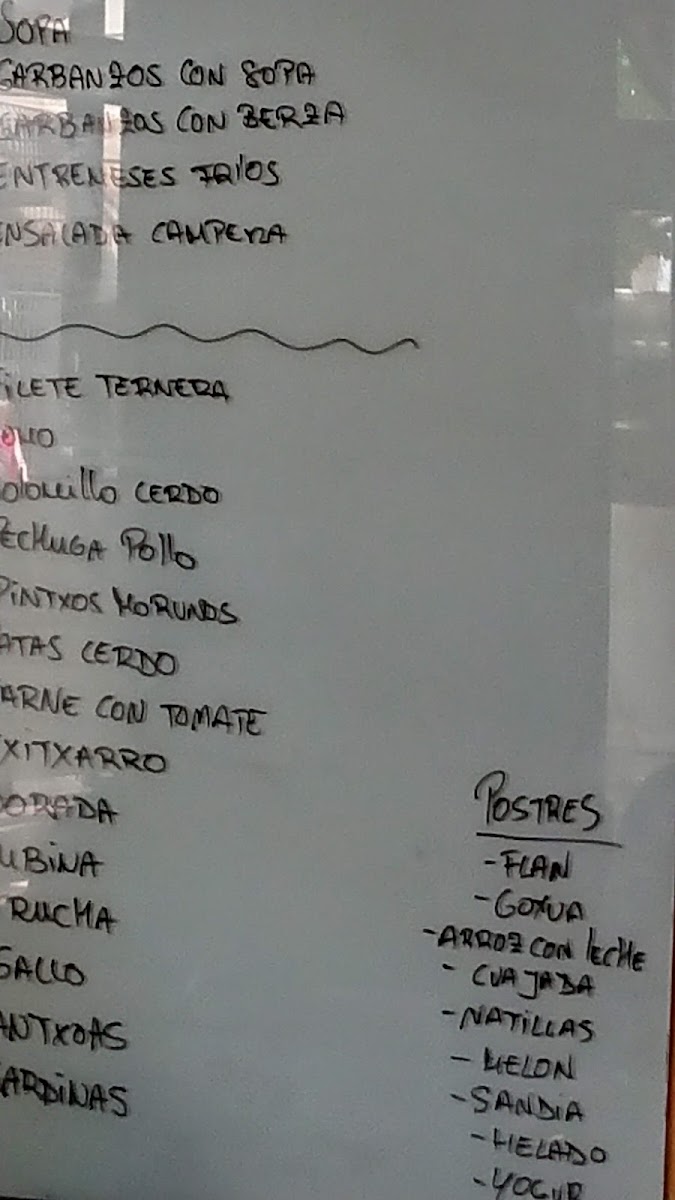 SOPA
GARBANZOS CON SOPA
GARBANZOS CON BERZA
ENTREMESES FRÍOS
ENSALADA CAMPERA
FILETE TERNERA
Solomillo CERDO
PECHUGA Pollo
PINTXOS MORUNOS
PATAS CERDO
CARNE CON TOMATE
TXITXARRO
DORADA
LUBINA
TRUCHA
GALLO
ANTXOAS
SARDINAS
POSTRES
-FLAN
-GOXUA
-ARROZ CON LECHE
- CUAJADA
-NATILLAS
- MELON
-SANDIA
-HELADO
-YOGUR